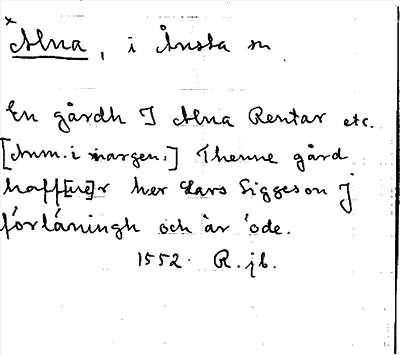 × Alna, i Ånsta sn
En gårdh J Alna Rentar etc.
[Anm. i margen.] Thenne gård
haff[ue]r her Lars Siggeson J
förläningh och är öde.
1552. R. jb.